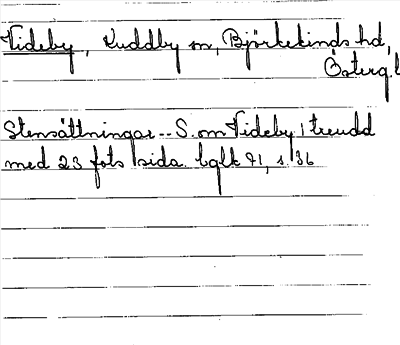 Videby, Kuddby sn, Björkekinds hd,
Österg.l
Stensättningar -- S. om Videby 1 treudd
med 23 fots sida. bglk 71, s 36